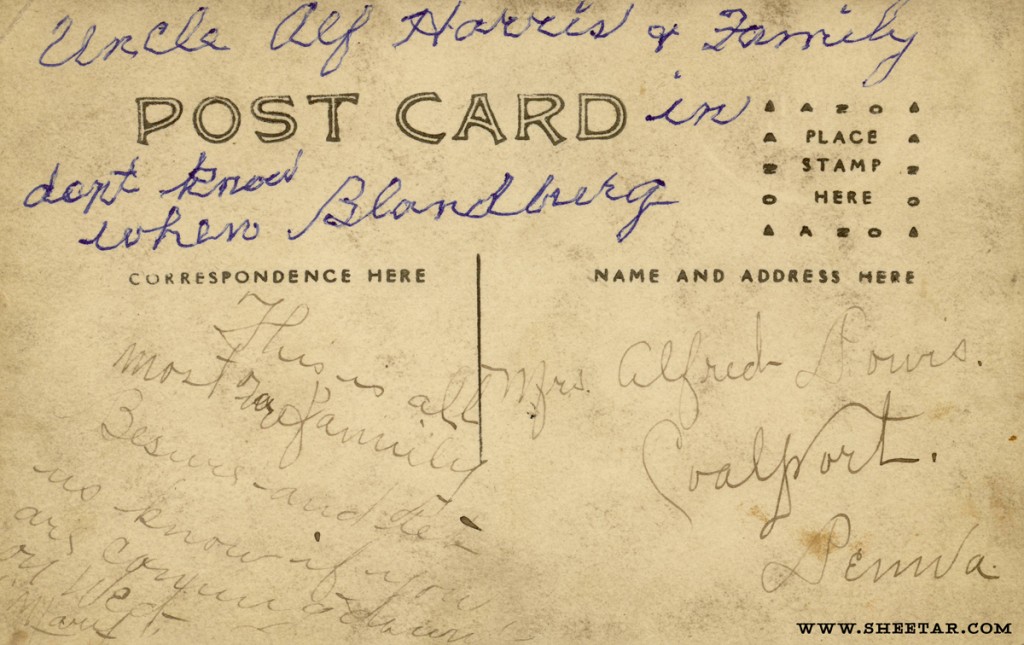 Uncle Alf Harris & Family
POST CARD in
dont know
when Blandburg
A A Z O A
PLACE
STAMP
HERE
A A Z O A
CORRESPONDENCE HERE
NAME AND ADDRESS HERE
This is all
most our Family
Besure and let
us know if you
are coming down
on Wed.
Mrs. Alfred
Coalport.
Penna
WWW.SHEETAR.COM